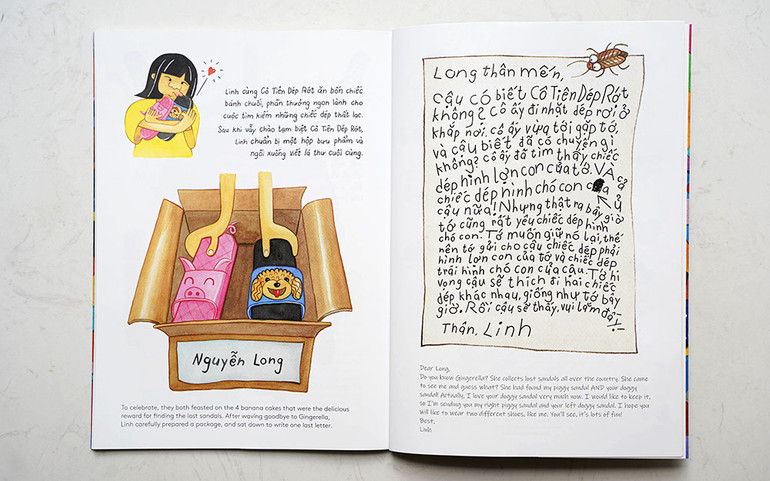 Linh cùng Cô Tiên Dép Rớt ăn bốn chiếc
bánh chuối, phần thưởng ngon lành cho
cuộc tìm kiếm những chiếc dép thất lạc.
Sau khi vẫy chào tạm biệt Cô Tiên Dép Rớt,
Linh chuẩn bị một hộp bưu phẩm và
ngồi xuống viết lá thư cuối cùng.
Nguyễn Long
To celebrate, they both feasted on the 4 banana cakes that were the delicious
reward for finding the lost sandals. After waving goodbye to Gingerella,
Linh carefully prepared a package, and sat down to write one last letter.
Long thân mến,
Cậu có biết Cô Tiên Dép Rớt
không? Cô ấy đi nhặt dép rơi ở
khắp nơi. Cô ấy vừa tới gặp tớ,
và cậu biết đã có chuyện gì
không? Cô ấy đã tìm thấy chiếc
dép hình lợn con của tớ. VÀ cả
chiếc dép hình chó con của
cậu nữa! Nhưng thật ra bây giờ
tớ cũng rất yêu chiếc dép hình
chó con. Tớ muốn giữ nó lại, thế
nên tớ gửi cho cậu chiếc dép phải
hình lợn con của tớ và chiếc dép
trái hình chó con của cậu. Tớ hi
vọng cậu sẽ thích đi hai chiếc
dép khác nhau, giống như tớ bây
giờ. Rồi cậu sẽ thấy, vui lắm đó!
Thân, Linh
Dear Long,
Do you know Gingerella? She collects lost sandals all over the country. She came
to see me and guess what? She had found my piggy sandal AND your doggy
sandal! Actually, I love your doggy sandal very much now. I would like to keep it,
so I'm sending you my right piggy sandal and your left doggy sandal. I hope you
will like to wear two different shoes, like me. You'll see, it's lots of fun!
Best,
Linh